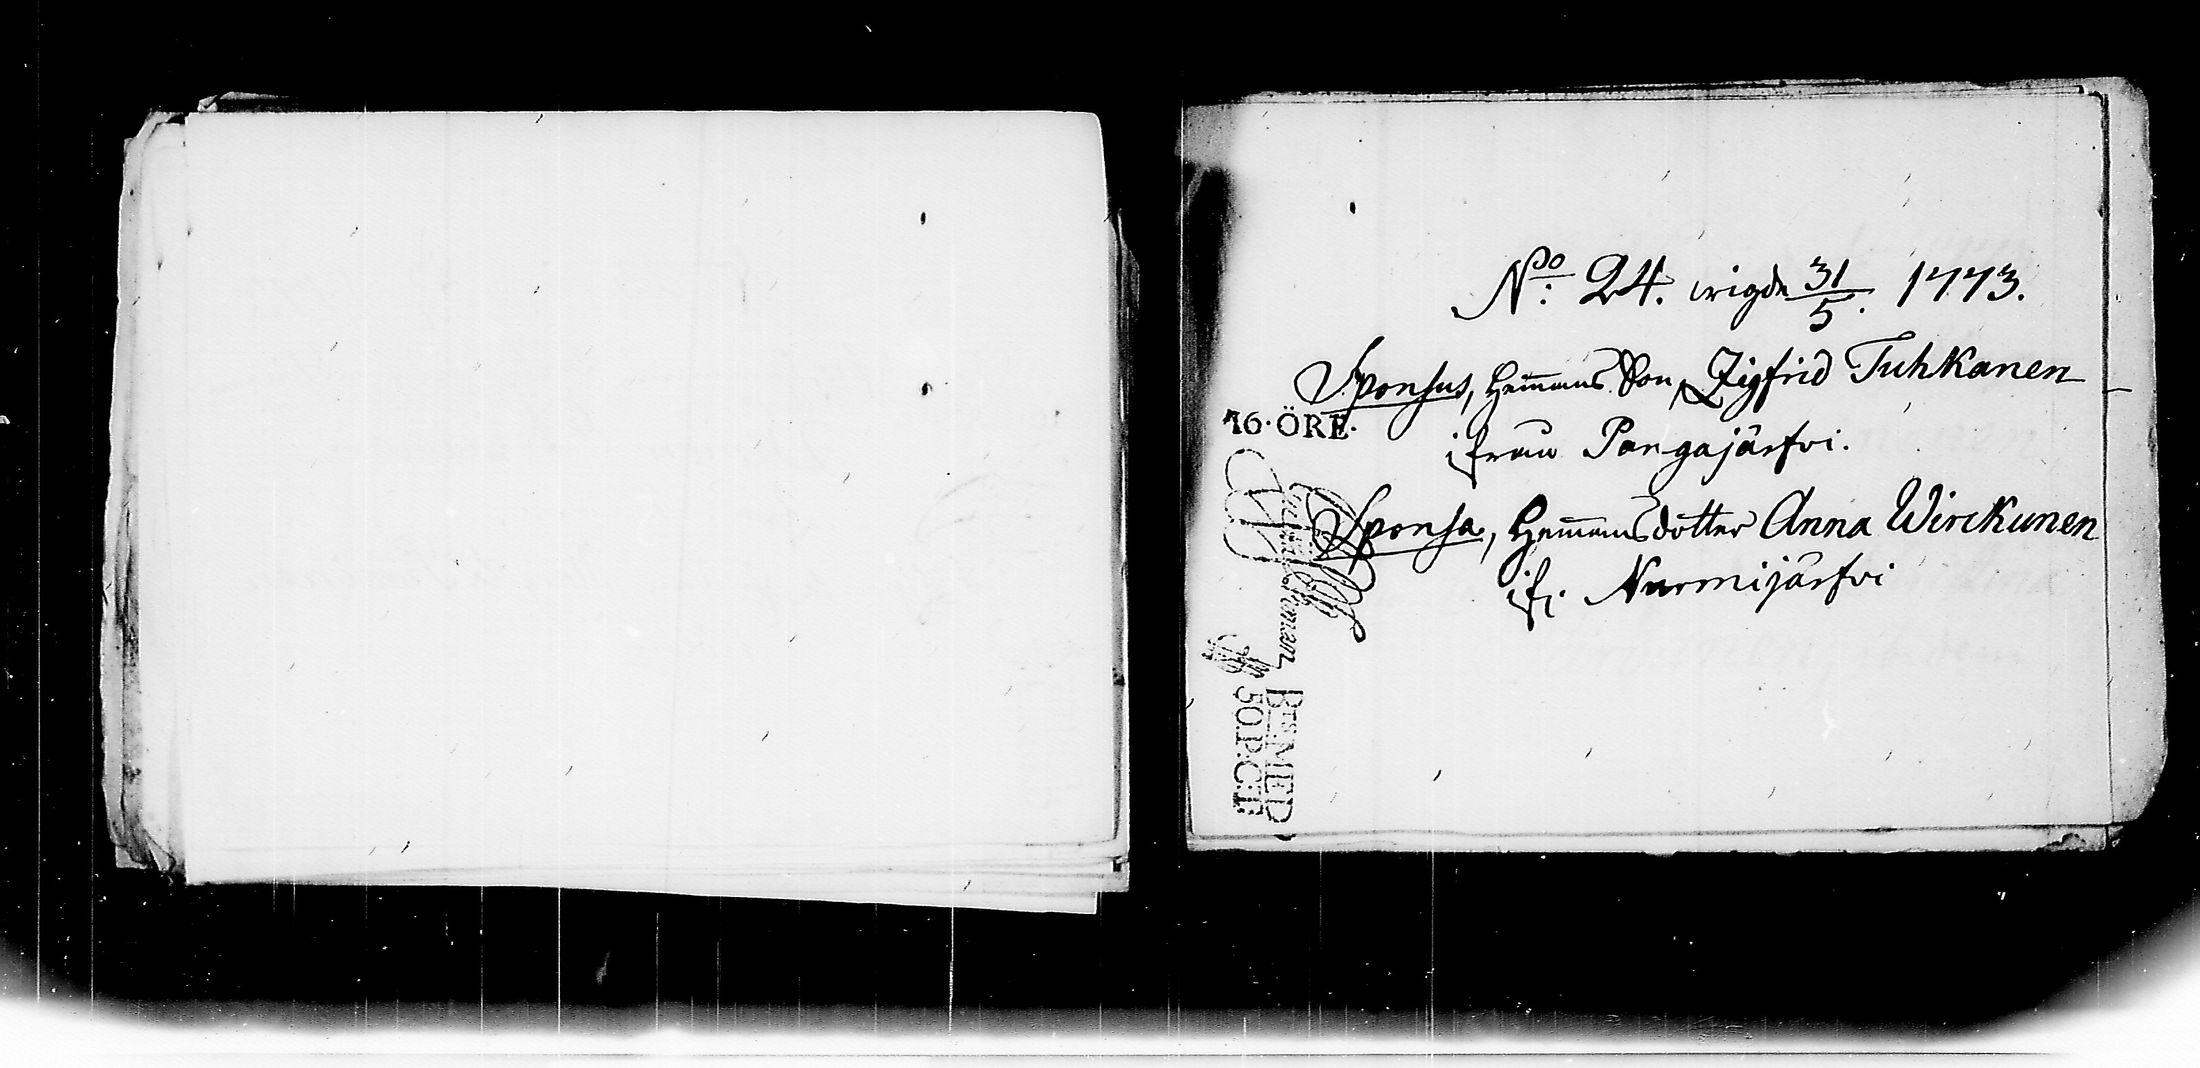 No: 24. wigde 31/5. 1773.
Sponsus, Hem̄ans Son, Zigfrid Tuhkanen
ifrån Pangajärfvi.
Sponsa, Hem̄ansdotter Anna Wirckunen
if: Nurmijärfvi
16·ÖRE·
BTS.MED
50.P:C:T: